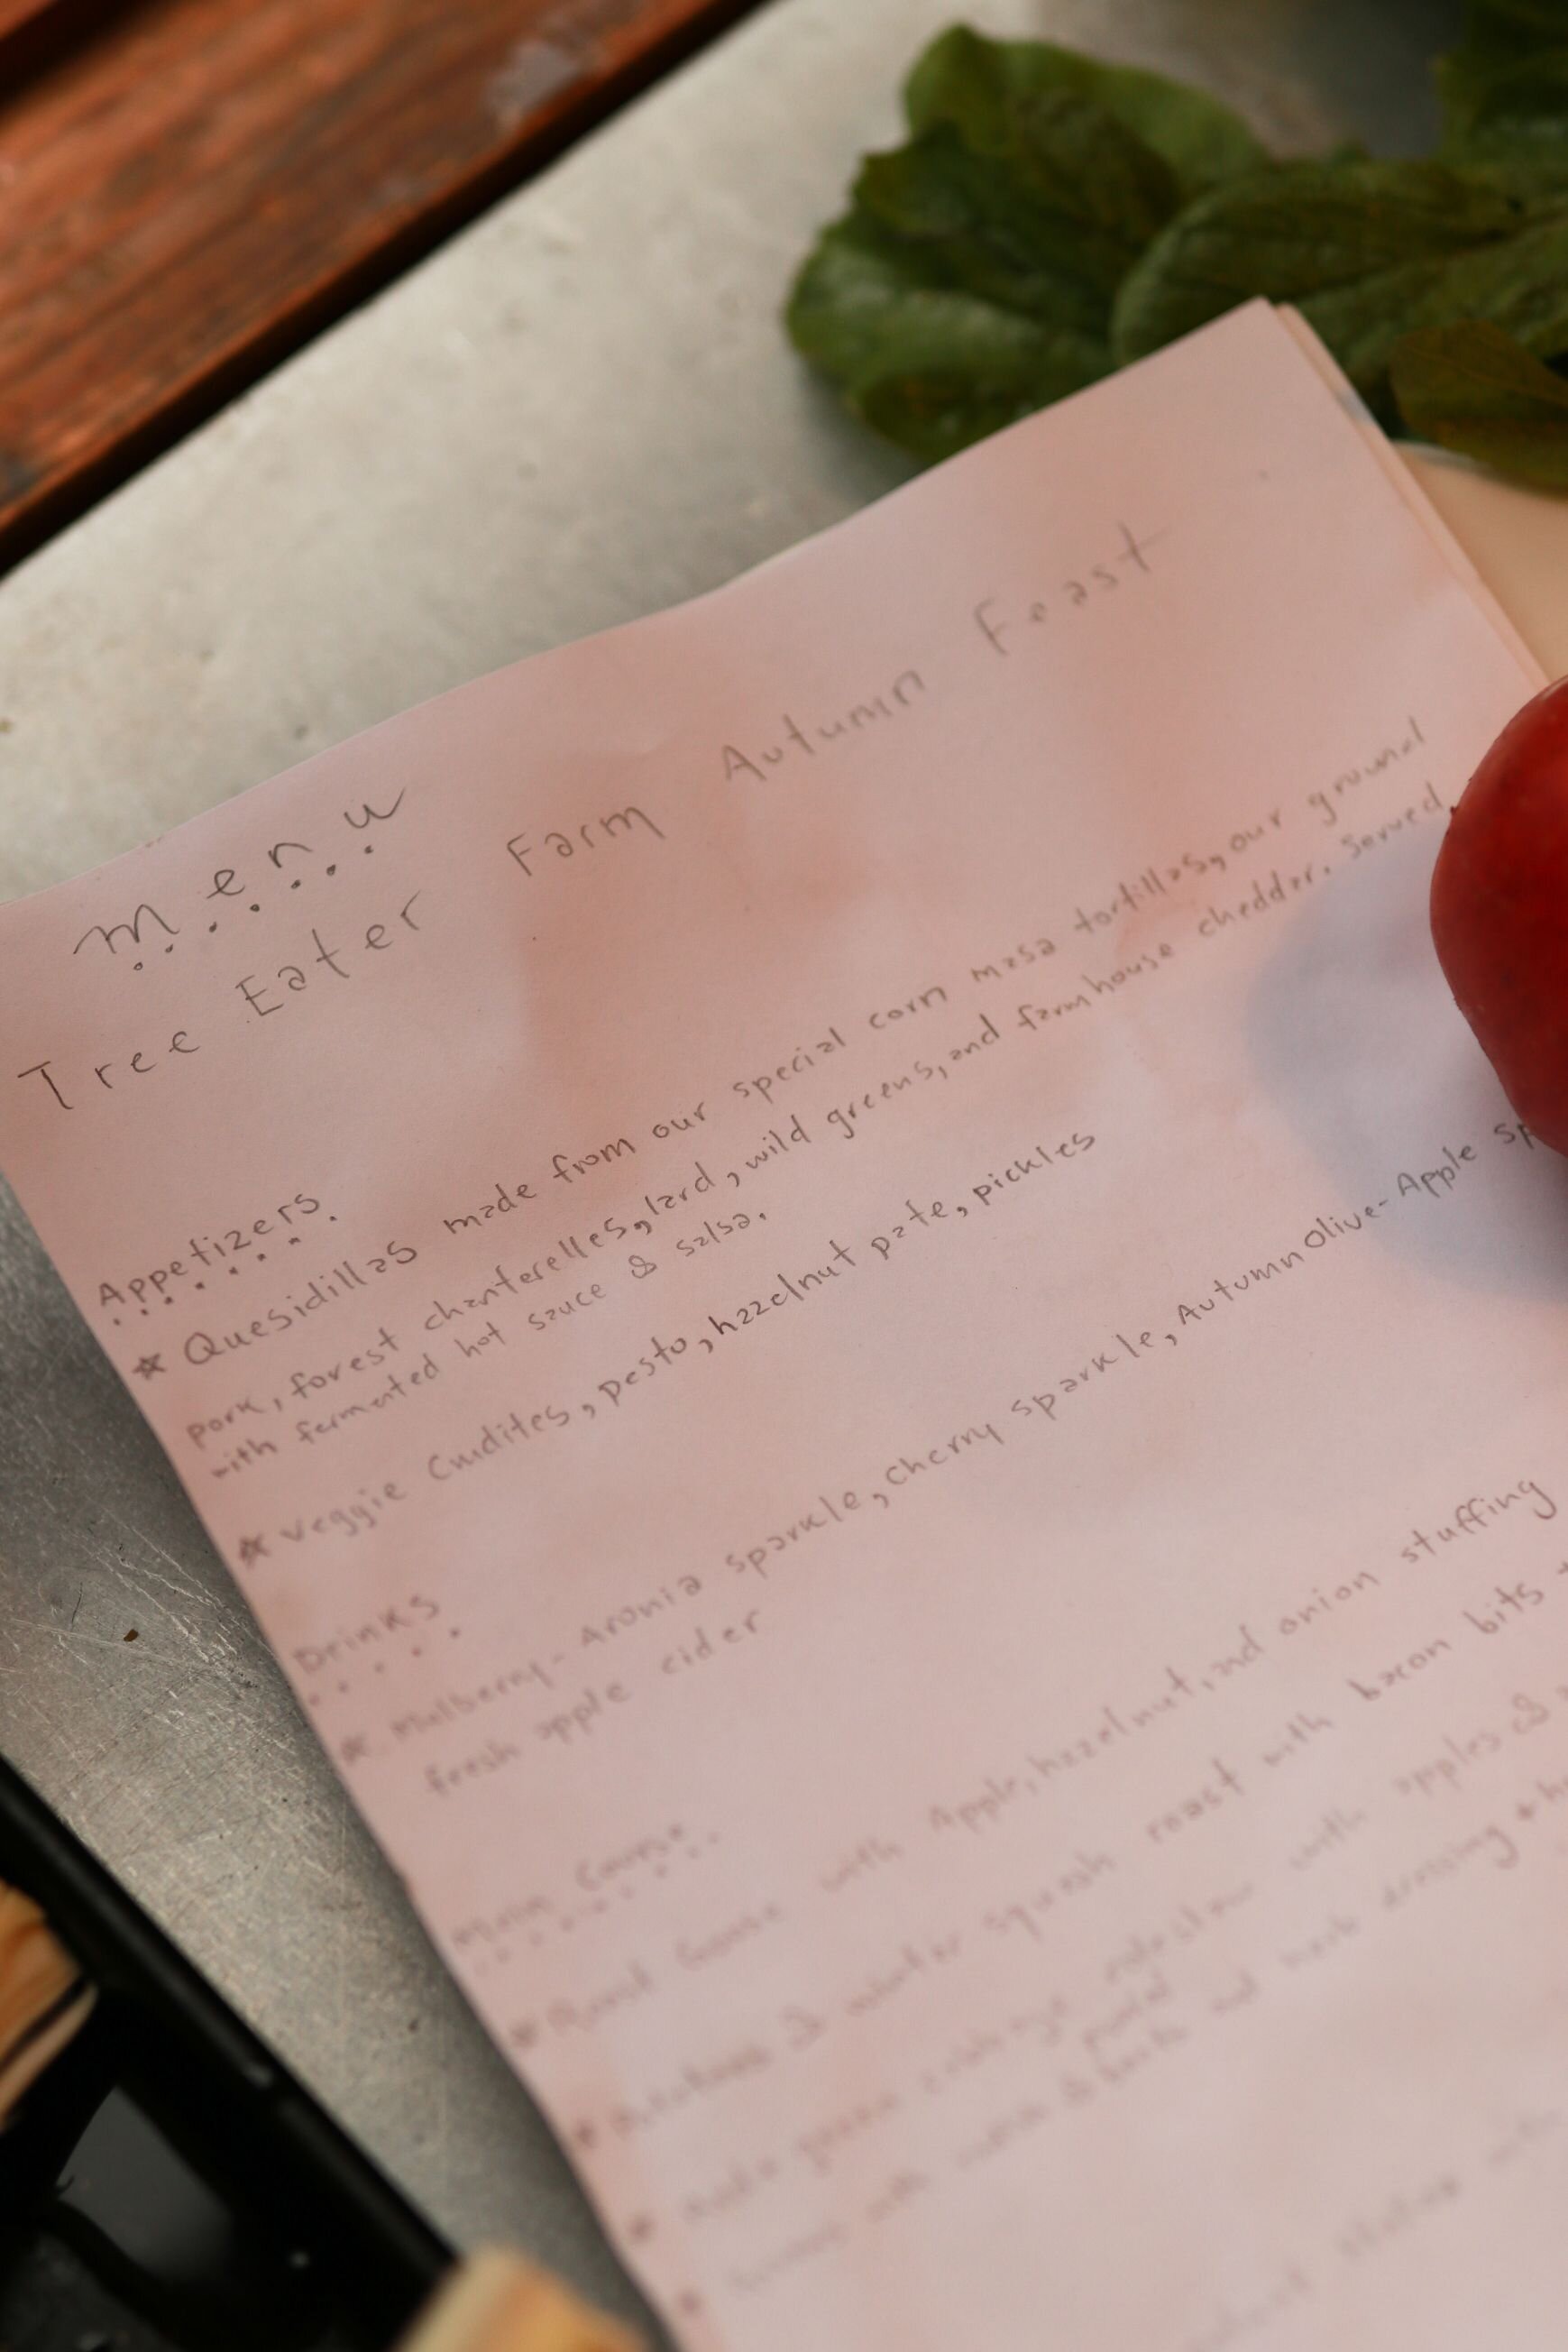 Menu
Tree Eater Farm Autumn Feast
Appetizers
☆ Quesidillas made from our special corn masa tortillas, our ground
pork, forest chanterelles, lard, wild greens, and farmhouse cheddar. Served
with fermented hot sauce & salsa.
☆ Veggie Crudites, pesto, hazelnut pate, pickles
Drinks
☆ Mulberry-Aronia sparkle, Cherry sparkle, Autumn Olive-Apple sp
fresh apple cider
Main Course
☆ Roast Goose with Apple, hazelnut, and onion stuffing
& winter squash roast with bacon bits +
cabbage with apples &
and dressing +